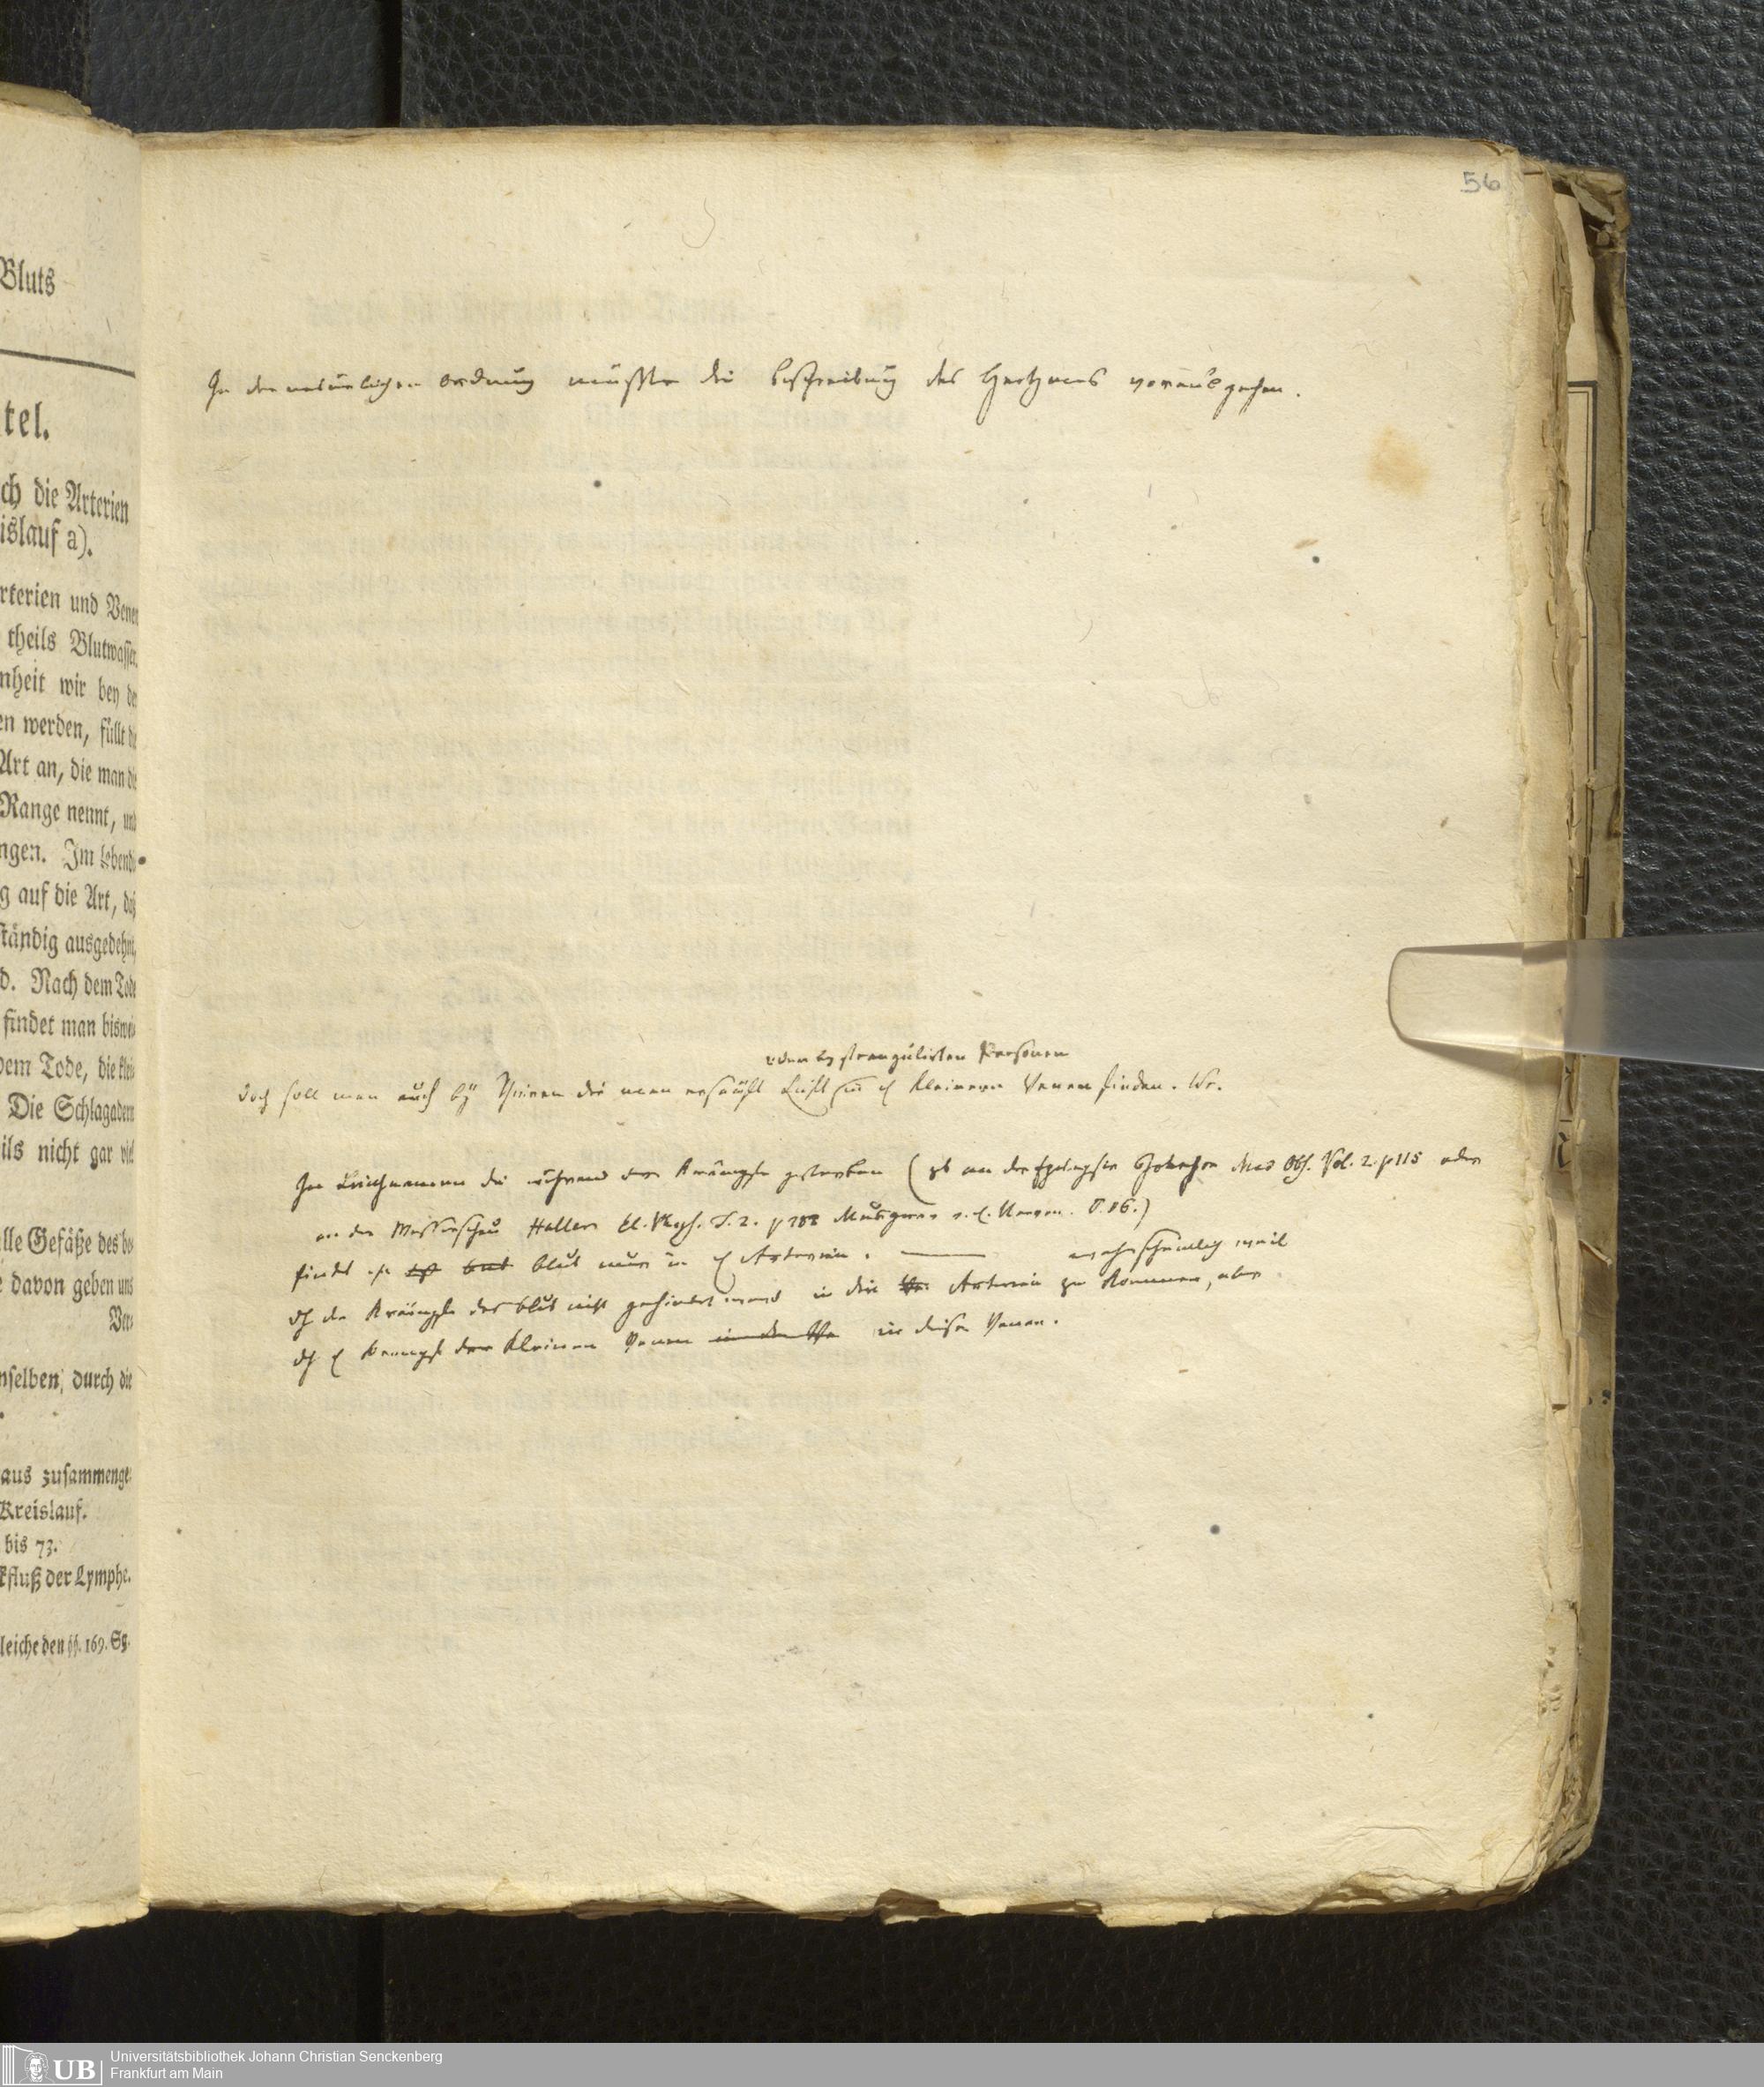 Bluts
tel.
ch die Arterien
islauf a).
rterien und Venen
theils Blutwasser,
nheit wir bey der
en werden, füllt die
Art an, die man die
Range nennt, und
ngen. Im lebende
g auf die Art, daß
ständig ausgedehnt,
d. Nach dem Tode
findet man biswei
dem Tode, die klei
Die Schlagadern
ils nicht gar viel
lle Gefäße des be
e davon geben uns
Ver
nselben, durch die
aus zusammenge
Kreislauf.
bis 73.
kfluß der Lymphe.
leiche den §§. 169. Sq.
56
In der natürlichen Ordnung müßte die Beschreibung des Hertzens vorausgehen.
oder by strangulirten Personen
doch soll man auch by Thieren die man ersäuft Luft in kleineren Venen finden. Wr.
In Leichnamen die während der Krämpfe gestorben (zb an der Epilepsie Johnson Med Obs. Vol. 2. p 115 oder
an der Wasserscheu Haller El. Phys. T. 2. p
findet blut nur in Arterien. — wahrscheinlich weil
die Krämpfe das blut nicht gehindert in die Arterien zu kommen, aber
Krampf der kleinen Venen in diese Venen.
UB
Universitätsbibliothek Johann Christian Senckenberg
Frankfurt am Main